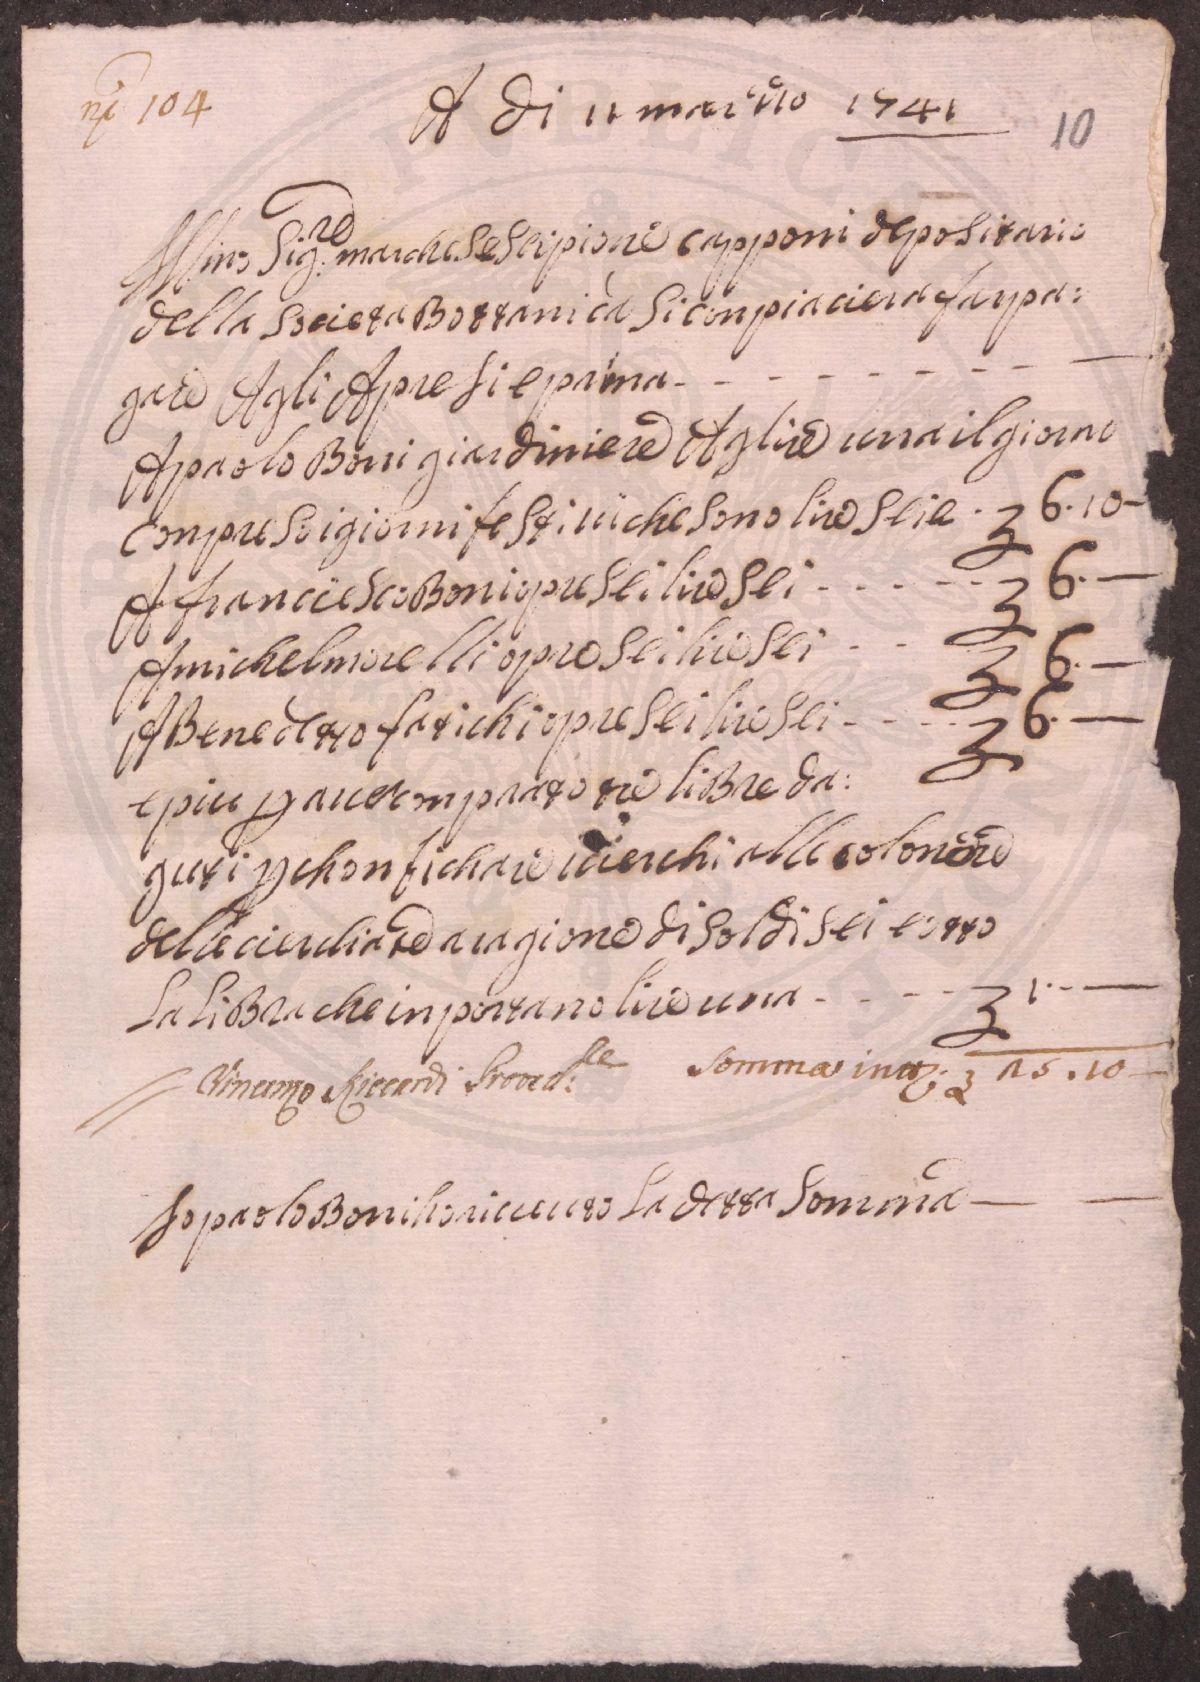 nº 104
A di 11 marzio 1741
10
Illmo Sigre marchese Scipione capponi depositario
della Societa Bottanica Si conpiaciera far pa:
gare Agli Apresi e prima
A paolo Boni giardiniere A lire una il giorno
conpreso i giorni festivi che sono lire Sei e 6.10
A franciesco Boni opre Sei lire Sei 6.
A michel morelli opre Sei lire Sei 6.
A Benedetto fatichi opre Sei lire Sei 6.
e piu p aver conprato tre libre da:
guti p chonfichare i cierchi alle colonere
delle cierchiate a ragione di Soldi Sei e otto
La Libra che inportano lire una 1.
Vincenzo Riccardi Provd:re Somma in tt: 25.10
Io paolo Boni ho riceuto La detta Somma